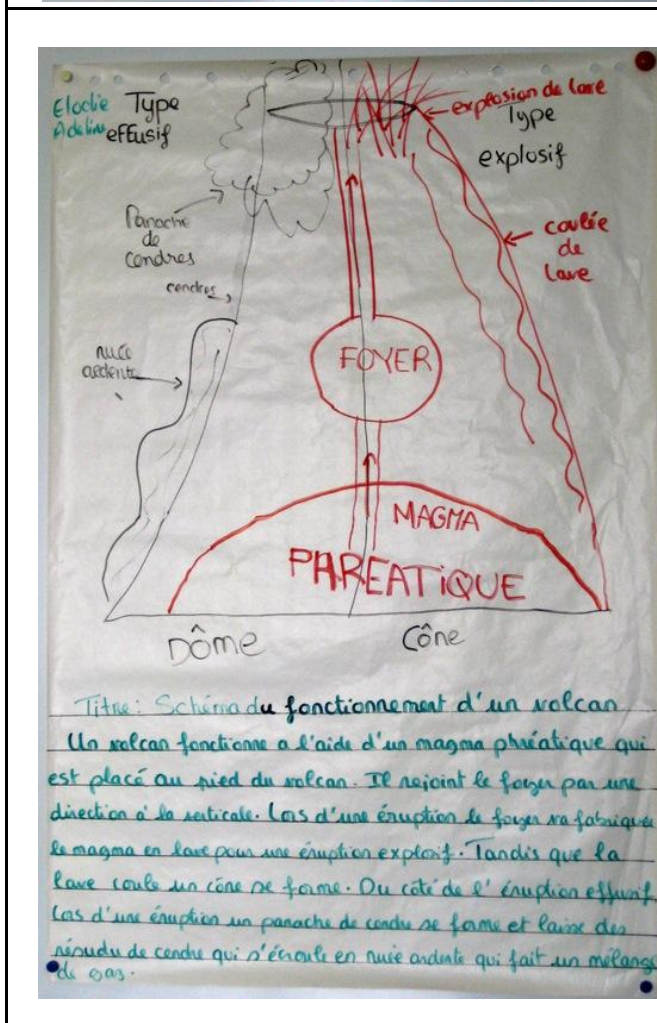 Elodie
Adeline
Type
effusif
explosion de lave
Type
explosif
Panache
de
cendres
coulée
de
lave
cendres
nuée
ardente
FOYER
MAGMA
PHREATIQUE
Dôme
Cône
Titre: Schéma du fonctionnement d'un volcan
Un volcan fonctionne a l'aide d'un magma phréatique qui
est placé au pied du volcan. Il rejoint le foyer par une
direction à la verticale. Lors d'une éruption le foyer va fabriquer
le magma en lave pour une éruption explosif. Tandis que la
lave coule un cône se forme. Du côté de l'éruption effusif
lors d'une éruption un panache de cendre se forme et laisse des
résudu de cendre qui s'écroule en nuée ardente qui fait un mélange
de gas.